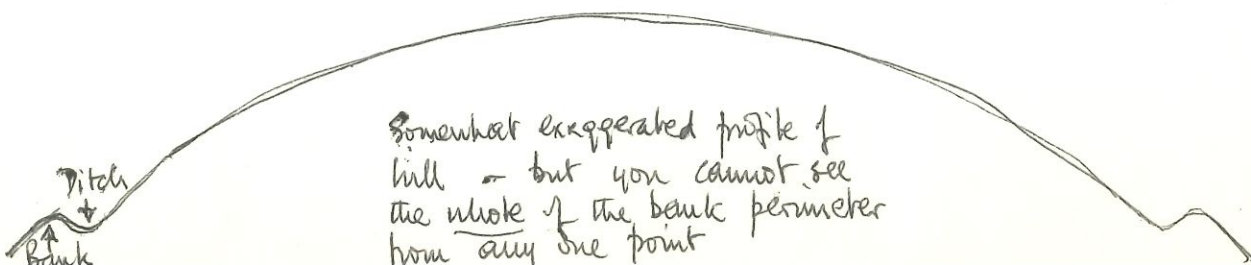 Somewhat exaggerated profile of
hill - but you cannot see
the whole of the bank perimeter
from any one point
Ditch
Bank